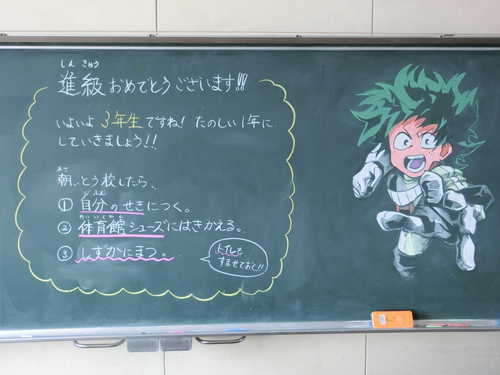 しん きゅう
進級 おめでとうございます!!!
いよいよ 3年生ですね! たのしい1年に
していきましょう!!
あさ
朝、とう校したら、
じぶん
① 自分のせきにつく。
たいいくかん
② 体育館シューズにはきかえる。
③ しずかにまつ。
トイレも
すませておく!!